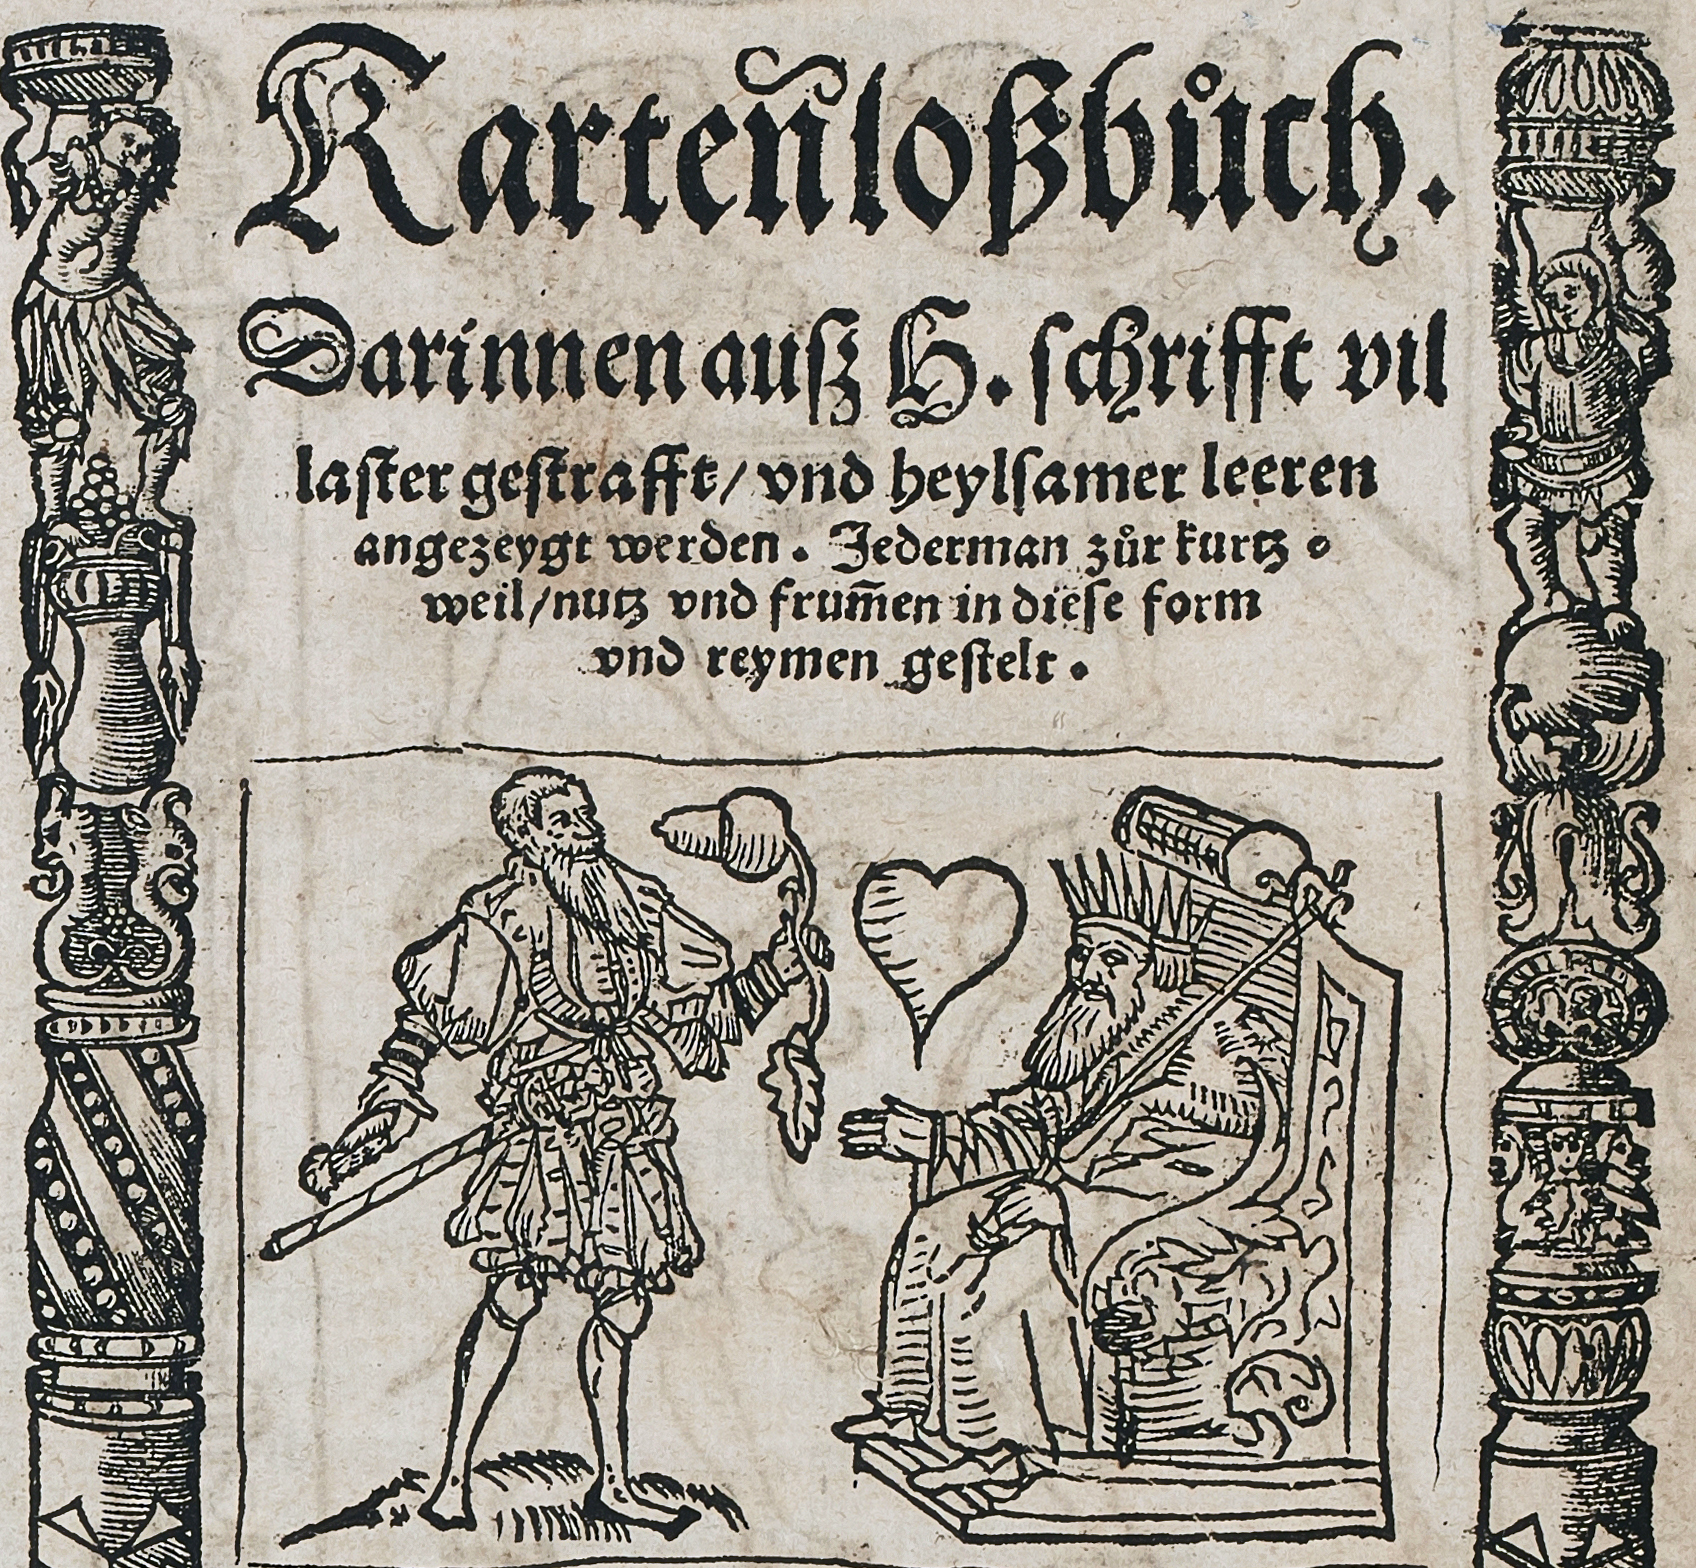 Karteñloßbůch.
Darinnen auß H. schrifft vil
laster gestrafft/ vnd heylsamer leeren
angezeygt werden. Jederman zůr kurtz ⸗
weil/nutz vnd frum̃en in diese form
vnd reymen gestelt.